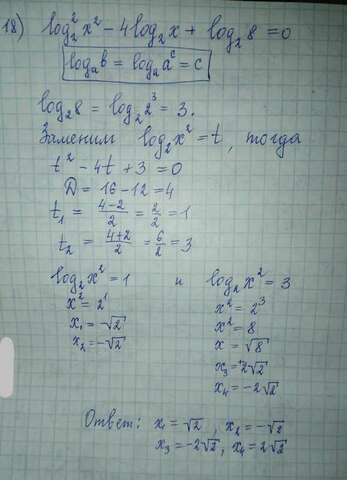 18) log₂²x² - 4log₂x + log₂8 = 0
logₐb = logₐaᶜ = c
log₂8 = log₂2³ = 3.
Заменим log₂x² = t, тогда
t² - 4t + 3 = 0
D = 16 - 12 = 4
t₁ = (4-2)/2 = 2/2 = 1
t₂ = (4+2)/2 = 6/2 = 3
log₂x² = 1 и log₂x² = 3
x² = 2¹ x² = 2³
x₁ = -√2 x² = 8
x₂ = -√2 x = √8
x₃ = +2√2
x₄ = -2√2
Ответ: x₁ = √2, x₂ = -√2
x₃ = -2√2, x₄ = 2√2